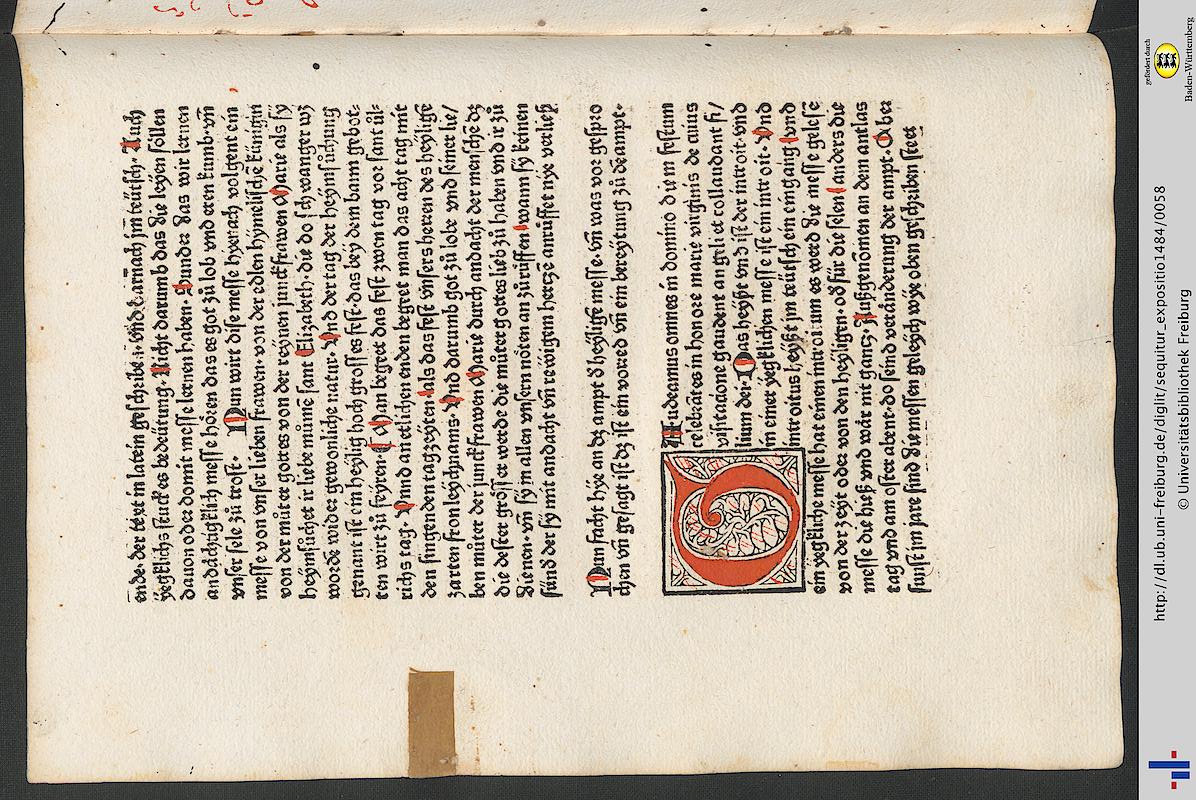 ende· der text in latein geschribē· vnd darnach im teütsch· Auch
yegklichs stuck es bedeütung· Nicht darumb das die leyen söllen
dauon oder domit messe lernen haben· Sunder das wir lernen
andächtigklich messe hören das es got zů lob vnd eren kumb· vn̄
vnser sele zů trost· Nun wirt dise messe hyenach volgent ein
messe von vnser lieben frawen· von der edlen hymelischē künigin
von der můter gottes von der reynen junckfrawen Marie als sy
heymsůchet ir liebe můme sant Elizabeth· die do schwanger wz
worden wider gewonliche natur· Vnd der tag der heymsůchung
genant ist ein heylig hoch grosses fest· das bey dem bann gebot-
ten wirt zů feyren· Man begeet das fest zwen tag vor sant ůl-
richs tag· Vnnd an etlichen enden begeet man das acht tag nit
den singenden tag zeyten· als das fest vnsers herren des heylige
zarten fronleychnams· Vnd darumb got zů lobe vnd siner lie/
ben můter der junckfrawen Marie durch andacht der menschē dz
die dester grösser werde die můter gottes lieb zů haben vnd ir zů
dienen· vn̄ sy in allen vnsern nöten an zů růffen wann sy keinen
sünder sy mit andacht vn̄ rewigem hertzē anrůffet nye verließ·
Nun facht hye an dz ampt d̄ heylige messe· vn̄ was vor gesprō
chen vn̄ gesagt ist dz ist ein vorred vn̄ ein bereytung zů dē ampt·
Audeamus omnes in domino diem festum
celebrātes in honore marie virginis de cuius
visitatione gaudent angeli et collaudant fi/
lium dei· Das heyßt vnd ist der introit· vnd
in einer yegklichen messe ist ein introit· Vnd
introitus heyßt im teütsch ein eingang vnd
ein yegkliche messe hat einen introitum es werd die messe gelesē
von der zeyt oder von den heyligen· od̄ für die selen anders die
messe die hieß vnd wär nit gantz Außgenōmen an dem antlas
tag vnd am oster abent· do seind veränderung der ampt· Aber
sunst im jare sind die messen geleych wye oben geschriben steet
http://dl.ub.uni-freiburg.de/diglit/sequitur_expositio1484/0058
© Universitätsbibliothek Freiburg
gefördert durch
Baden-Württemberg